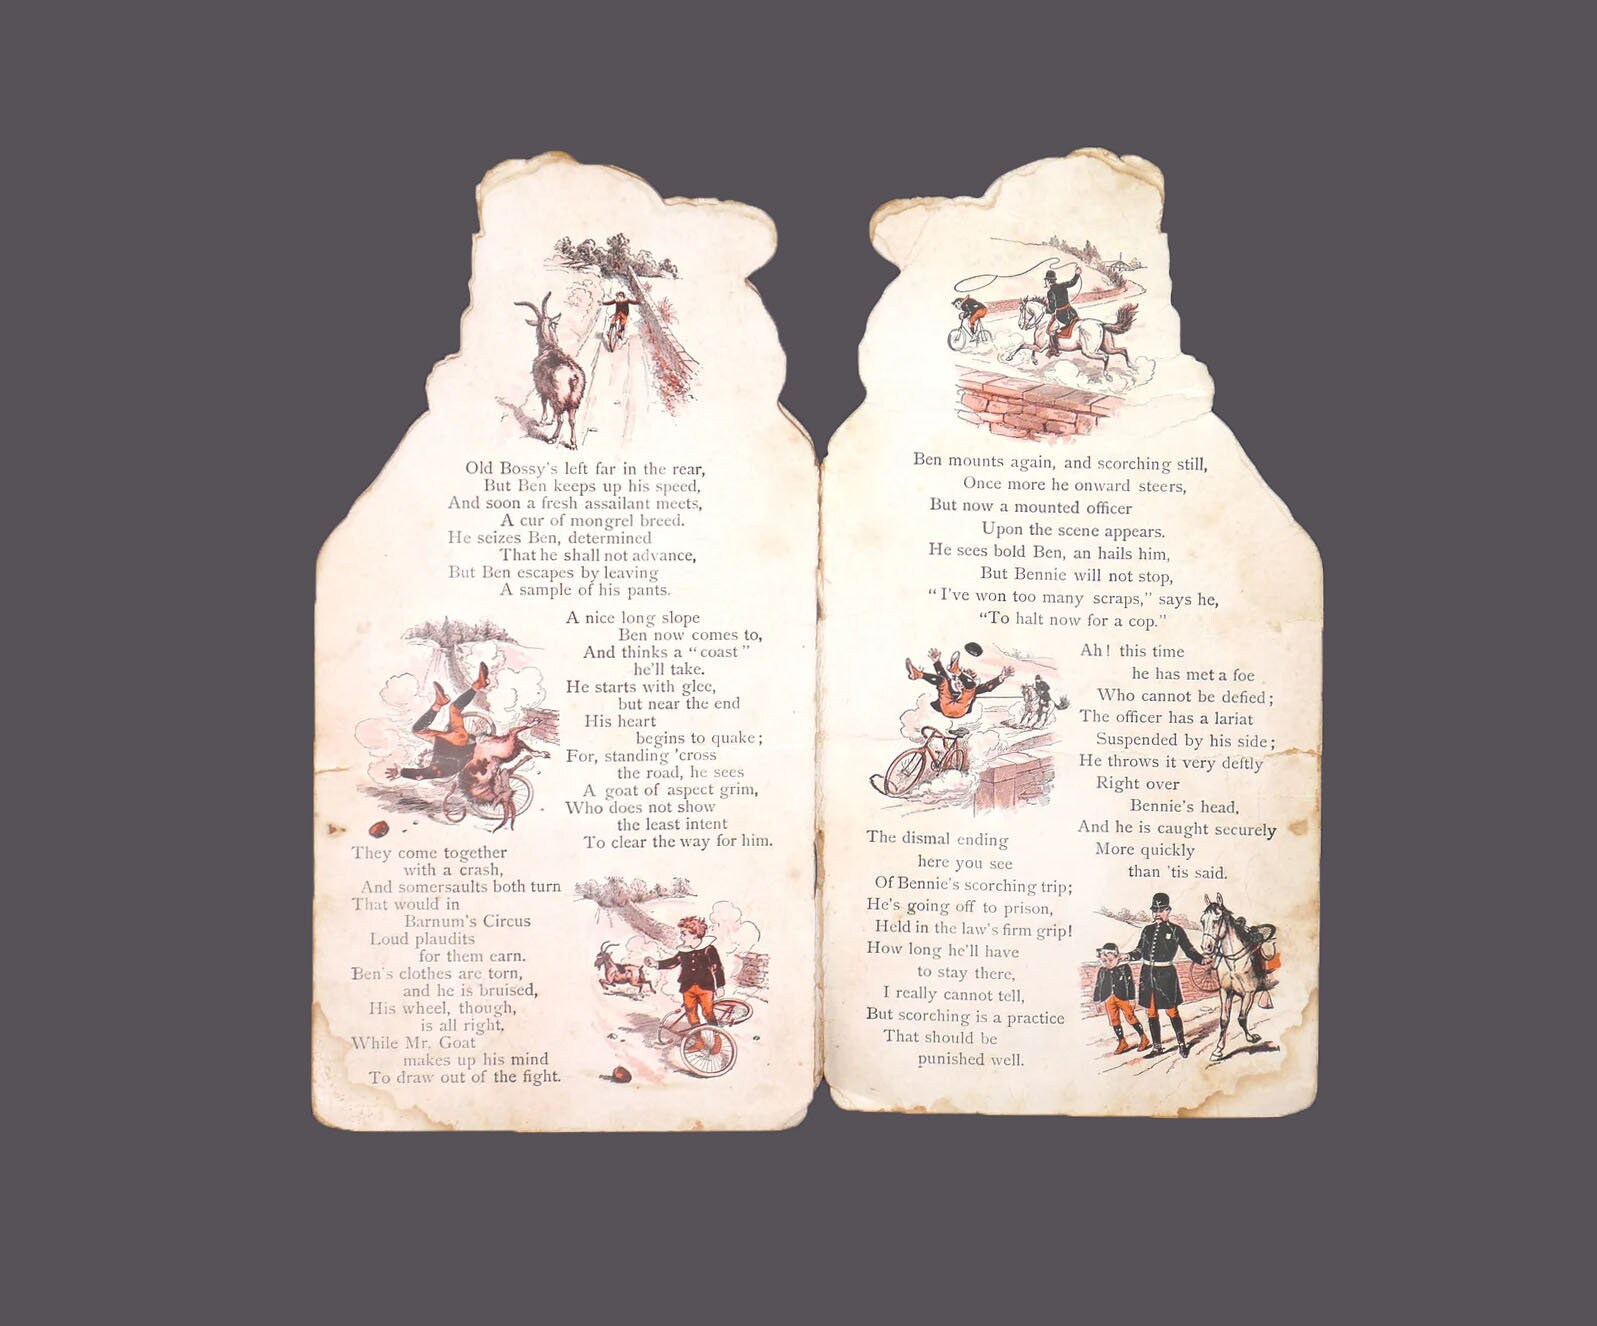 Old Bossy's left far in the rear,
But Ben keeps up his speed,
And soon a fresh assailant meets,
A cur of mongrel breed.
He seizes Ben, determined
That he shall not advance,
But Ben escapes by leaving
A sample of his pants.
A nice long slope
Ben now comes to,
And thinks a "coast"
he'll take.
He starts with glee,
but near the end
His heart
begins to quake;
For, standing 'cross
the road, he sees
A goat of aspect grim,
Who does not show
the least intent
To clear the way for him.
They come together
with a crash,
And somersaults both turn
That would in
Barnum's Circus
Loud plaudits
for them earn.
Ben's clothes are torn,
and he is bruised,
His wheel, though,
is all right,
While Mr. Goat
makes up his mind
To draw out of the fight.
Ben mounts again, and scorching still,
Once more he onward steers,
But now a mounted officer
Upon the scene appears.
He sees bold Ben, an hails him,
But Bennie will not stop,
"I've won too many scraps," says he,
"To halt now for a cop."
Ah! this time
he has met a foe
Who cannot be defied;
The officer has a lariat
Suspended by his side;
He throws it very deftly
Right over
Bennie's head,
And he is caught securely
More quickly
than 'tis said.
The dismal ending
here you see
Of Bennie's scorching trip;
He's going off to prison,
Held in the law's firm grip!
How long he'll have
to stay there,
I really cannot tell,
But scorching is a practice
That should be
punished well.